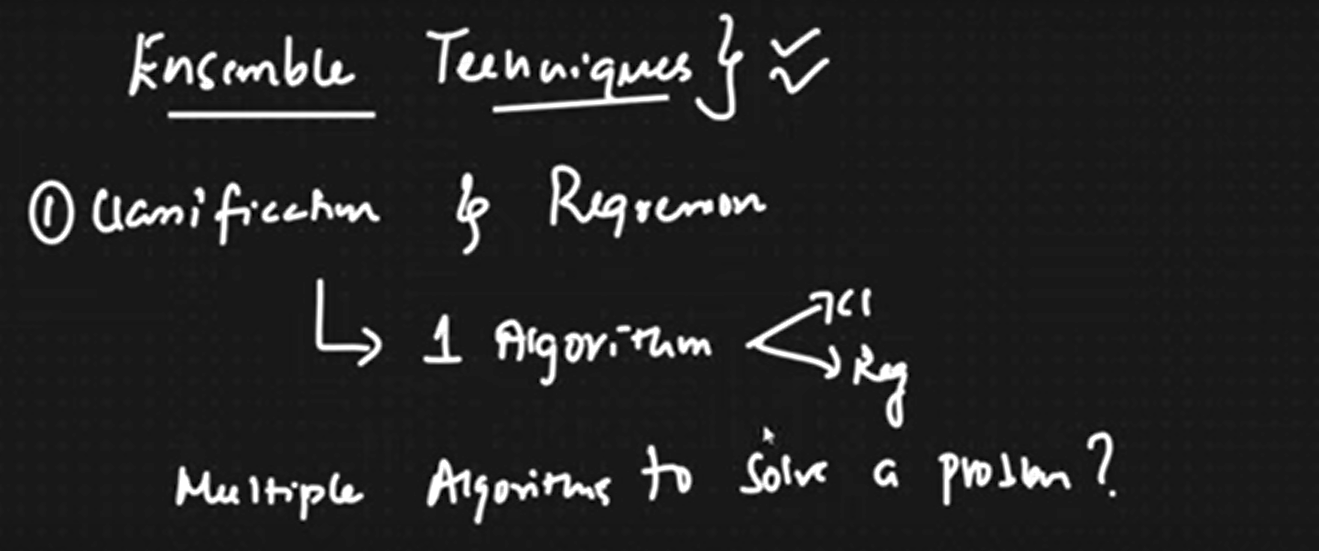 Ensemble Techniques }
① Classification & Regression
1 Algorithm Cl
Reg
Multiple Algorithms to solve a problem?